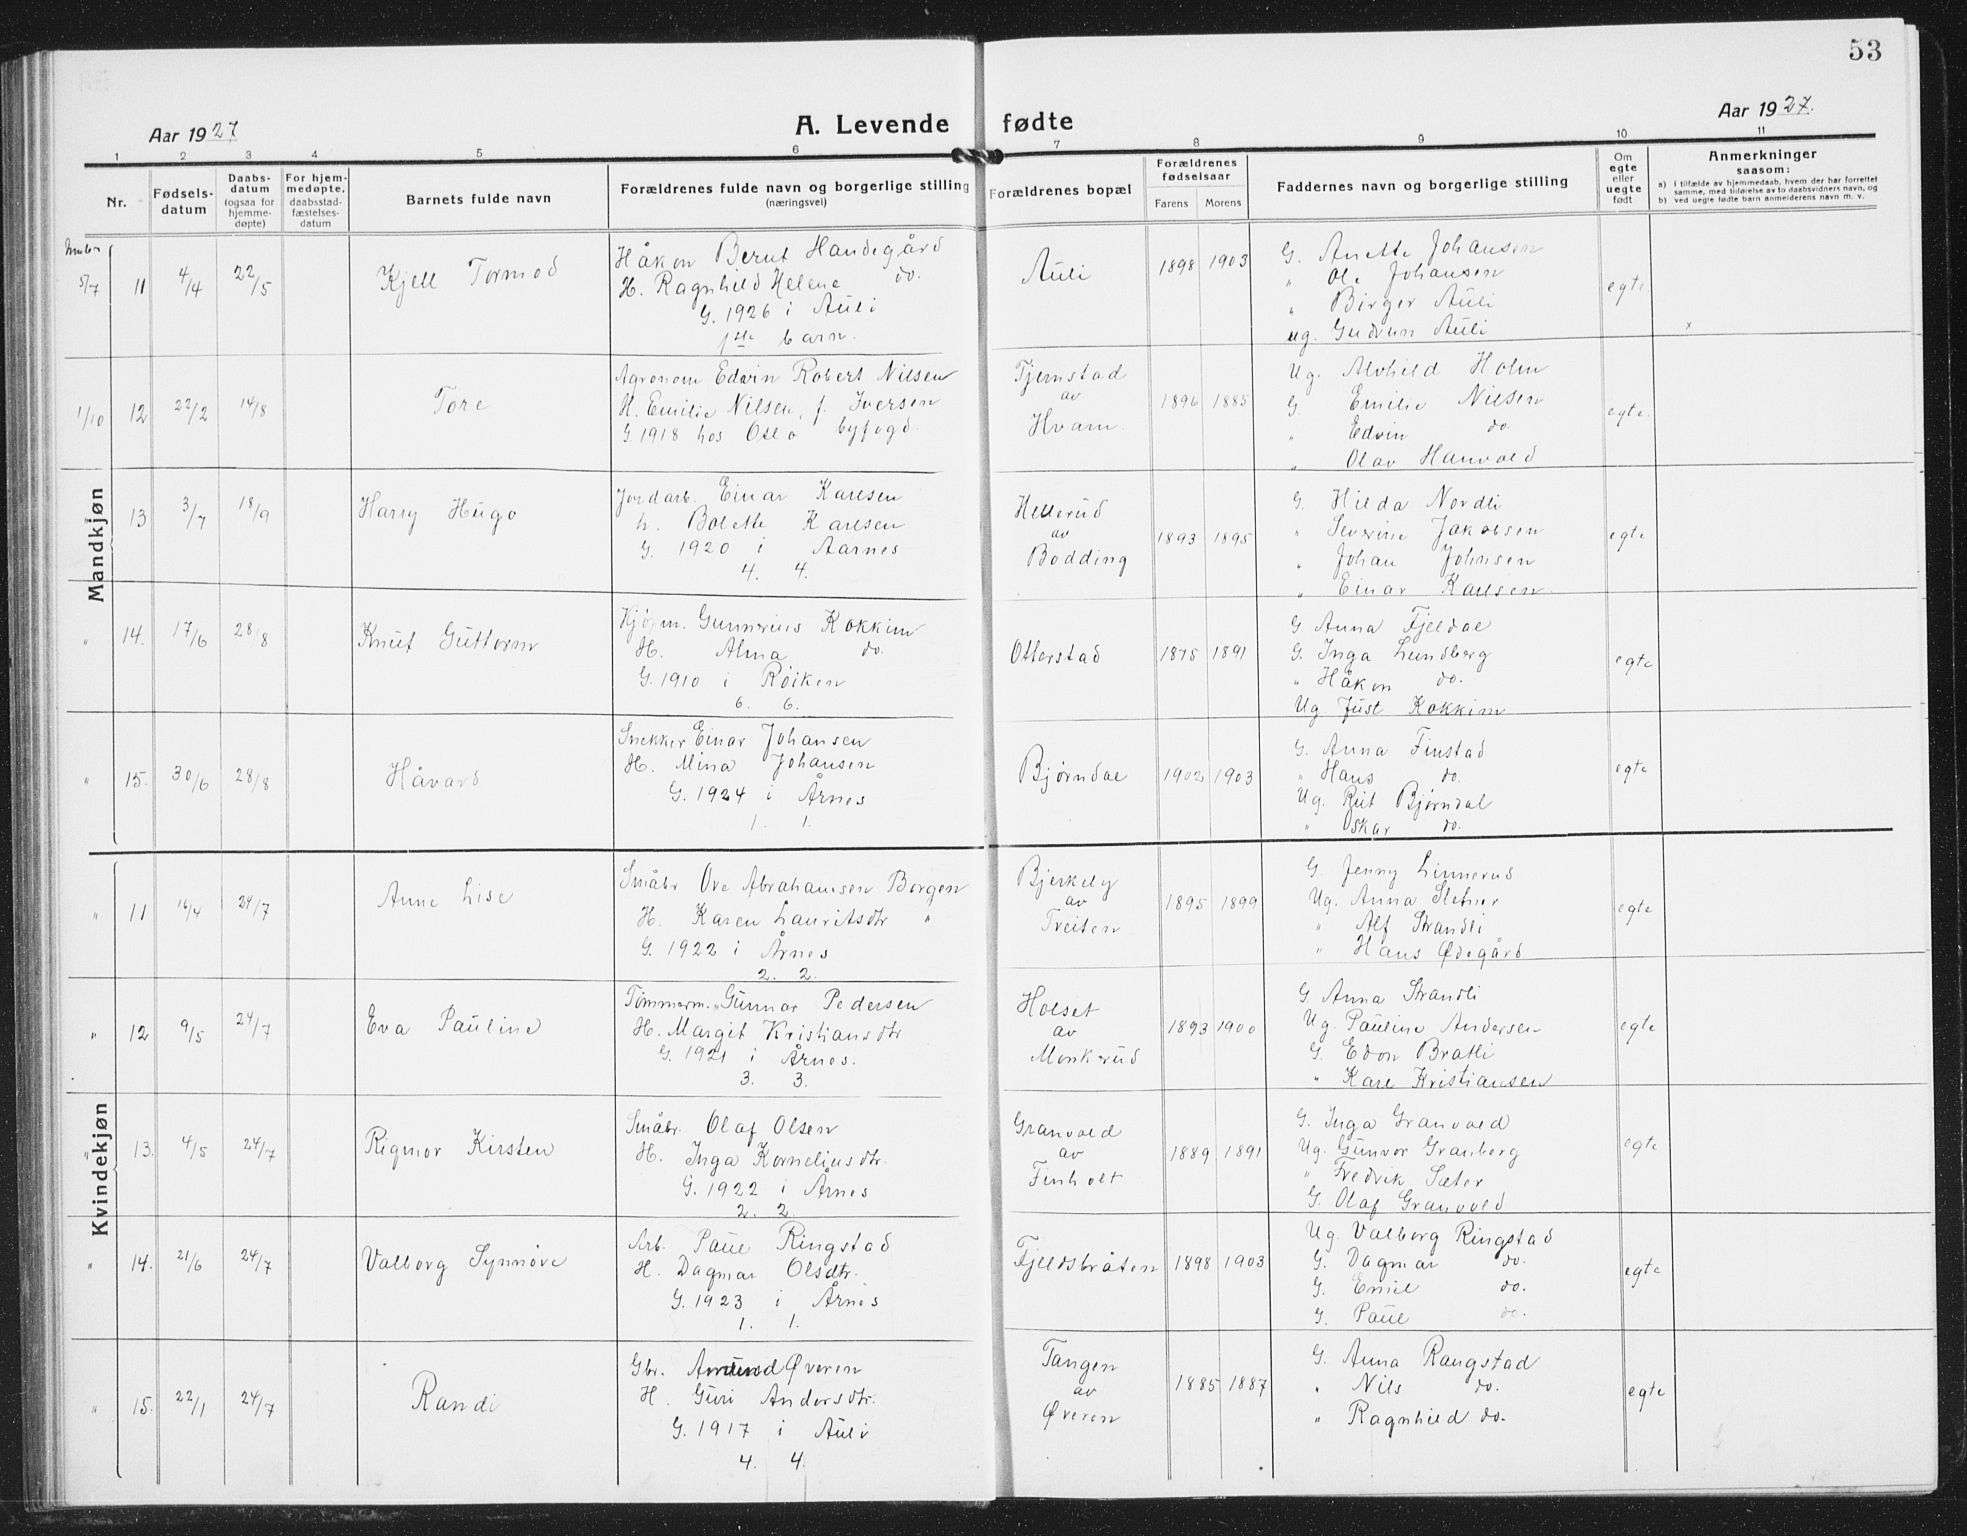 53
Aar 1927
A. Levende fødte
Aar 1927.
1 2 3 4 5 6 7 8 9 10 11
Nr.
Fødsels-
datum
Daabs-
datum
(ogsaa for
hjemme-
døpte)
For hjem-
medøpte,
daabsstad-
fæstelses-
datum
Barnets fulde navn
Forældrenes fulde navn og borgerlige stilling
(næringsvei)
Forældrenes bopæl
Forældrenes
fødselsaar
Farens Morens
Faddernes navn og borgerlige stilling
Om
egte
eller
uegte
født
Anmerkninger
saasom:
a) I tilfælde av hjemmedaab, hvem der har forrettet
samme, med tilføielse av to daabsvidners navn, og
b) ved uegte fødte barn anmelderens navn m. v.
Mandkjøn
5/7 11 4/4 22/5 Kjell Tormod
Håkon Bernt Handegård
H. Ragnhild Helene do.
G. 1926 i Auli
1ste barn.
Auli 1898 1903
G. Anette Johansen
" Ole Johansen
" Birger Auli
ug. Gudrun Auli
egte.
x
1/10 12 22/2 14/8 Tore
Agronom Edvin Robert Nilsen
H. Emilie Nilsen, f. Iversen
G. 1918 hos Oslo byfogd.
Tjernstad
av
Hvam.
1896 1885
Ug. Alvhild Holm
G. Emilie Nilsen
" Edvin do.
" Olav Hanvold
egte.
13 3/7 18/9 Harry Hugo
Jordarb. Einar Karlsen
h. Bolette Karlsen
G. 1920 i Aarnes
4. 4.
Hellerud
av
Bodding
1893 1895
G. Hilda Nordli
" Severine Jakobsen
" Johan Johnsen
" Einar Karlsen
egte
" 14. 17/6 28/8 Knut Guttorm
Kjøpm. Gunnerius Kokkim
H. Alma do.
G. 1910 i Røiken
6. 6.
Otterstad 1875 1891
G. Anna Fjeldal
G. Inga Lundberg
" Håkon do.
Ug. Just Kokkim
egte
" 15. 30/6 28/8 Håvard
Snekker Einar Johansen
H. Mina Johansen
G. 1924 i Årnes
1. 1.
Bjørndal 1902 1903
G. Anna Finstad
" Hans do.
Ug. Rut Bjørndal
" Oskar do.
egte
Kvindekjøn
" 11 16/4 24/7 Anne Lise
Småbr Ove Abrahamsen Borgen
H. Karen Lauritsdtr "
G. 1922 i Årnes
2. 2.
Bjerkely
av
Treiten
1895 1899
G. Jenny Linnerud
Ug. Anna Sletner
" Alf Strandli
" Hans Ødegård
egte
" 12 9/5 24/7 Eva Pauline
Tømmerm. Gunnar Pedersen
H. Margit Kristiansdtr
G. 1921 i Årnes.
3. 3.
Holset
av
Monkerud
1893 1900
G. Anna Strandli
Ug. Pauline Andersen
G. Edon Bratli
" Kare Kristiansen
egte
" 13. 4/5 24/7 Rigmor Kirsten
Småbr. Olaf Olsen
H. Inga Korneliusdtr.
G. 1922 i Årnes
2. 2.
Granvold
av
Finholt
1889 1891
G. Inga Granvold
Ug. Gunvor Granberg
" Fredrik Sæter
G. Olaf Granvold
egte
" 14. 21/6 24/7 Valborg Synnøve
Arb. Paul Ringstad
H. Dagmar Olsdtr.
G. 1923 i Årnes
1. 1.
Fjeldsbråten 1898 1903
Ug. Valborg Ringstad
G. Dagmar do.
G. Emil do.
G. Paul do.
egte
" 15. 22/1 24/7 Randi
Gbr. Amund Øveren
H. Guri Andersdtr.
G. 1917 i Auli
4. 4.
Tangen
av
Øveren
1885 1887
G. Anna Rangstad
" Nils do.
" Ragnhild do.
egte